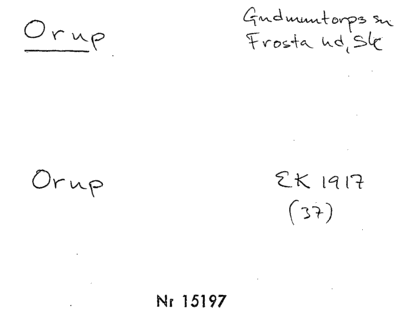 Orup
Gudmuntorps sn
Frosta hd, Sk
Orup
EK 1917
(37)
Nr 15197